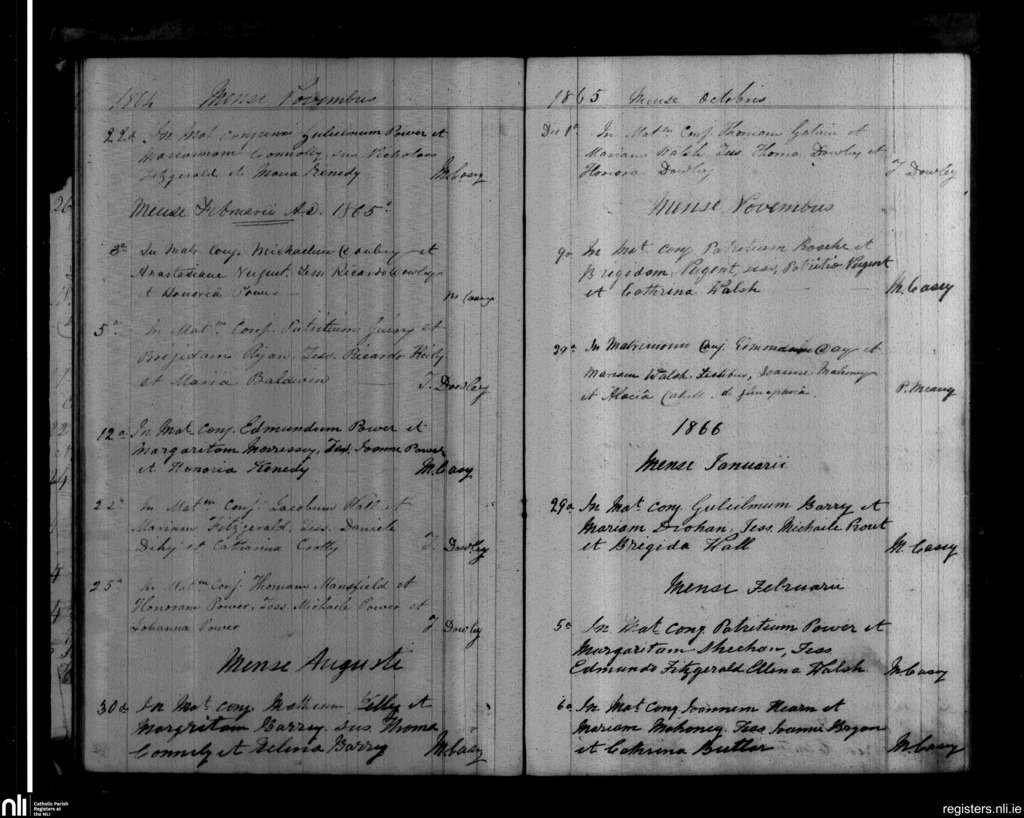 1864 Mense Novembus
22a In Mat conjunxi Gulielmum Power et
Mariannam Connolly, Tess Nicholas
Fitzgerald et Maria Kenedy M. Casey
Mense Februarii A.D. 1865
In Mat Conj. Michaelem et
Anastasiam Nugent. Tess Ricardo
et Honoria Power M Casey
5a In Matm Conj. Patritium et
Brigidam Ryan. Tess. Ricardo
et Maria Baldwin T. Dowley
12a In Mat Conj. Edmundum Power et
Margaritam Morrissey, Tess. Joanne Power
et Honoria Kenedy M. Casey
22a In Matm Conj. Jacobum Hall et
Mariam Fitzgerald, Tess. Daniele
et Catharina Crotty T. Dowley
25a In Matm Conj. Thomam Mansfield et
Honoram Power, Tess. Michaele Power et
Johanna Power T. Dowley
Mense Augusti
30a In Mat Conj. et
Margritam Barry Tess Thoma
Connely et Helena Barry M. Casey
1865 Mense Octobris
Die 1a In Matm Conj. Thomam Galvin et
Mariam Walsh, Tess. Thoma Dowley et
Honora Dowley T. Dowley
Mense Novembus
9a In Mat Conj Patritium Roche et
Brigedam Nugent, Tess, Patritio Nugent
et Cathrina Walsh M. Casey
29a In Matrimonium Conj. Edmundum Day et
Mariam Walsh. Testibus, Joanne Mahoney
et Alacia P. Meany
1866
Mense Januarii
29a In Mat Conj Gulielmum Barry et
Mariam Drohan, Tess, Michaele Prout
et Brigida Wall M. Casey
Mense Februarii
5a In Mat Conj Patritium Power et
Margaritam Sheehan, Tess
Edmundo Fitzgerald Ellena Walsh M Casey
6a In Mat Conj Joannem Hearn et
Mariam Mahoney. Tess Joanne Bryan
et Cathrina Butler M. Casey
nli
Catholic Parish
Registers at
the NLI
registers.nli.ie